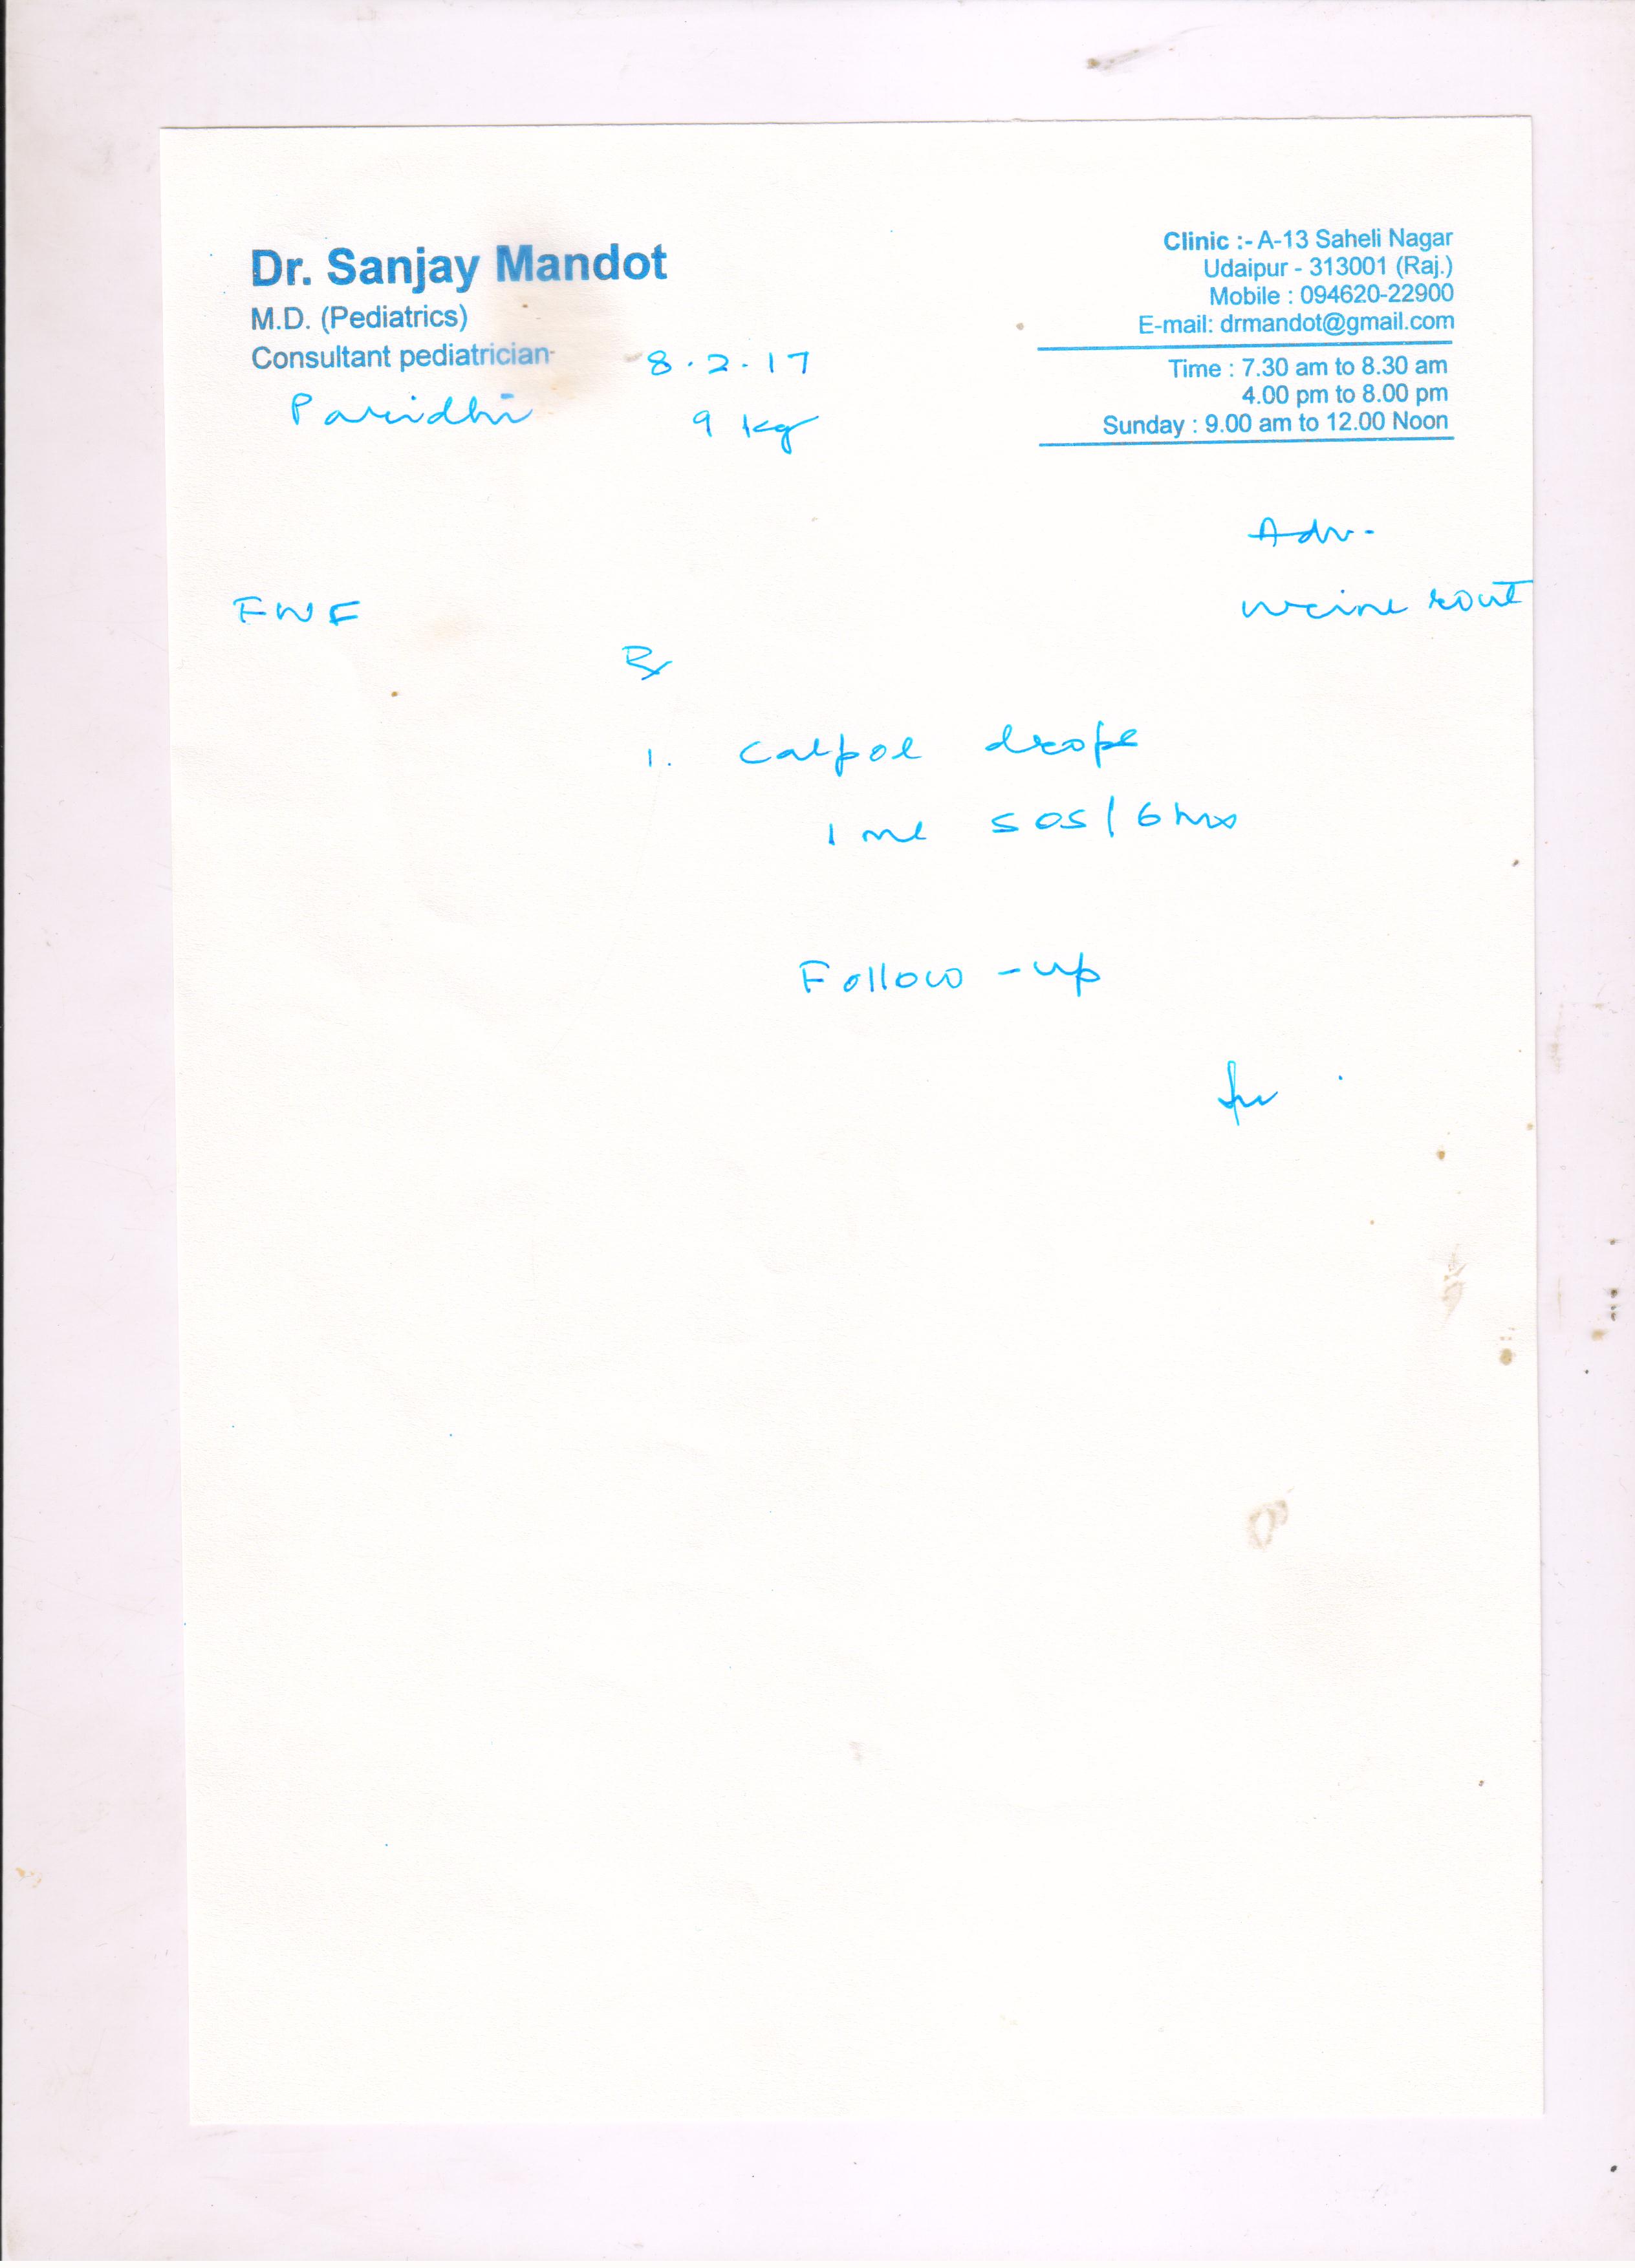 Dr. Sanjay Mandot
M.D. (Pediatrics)
Consultant pediatrician
Clinic :- A-13 Saheli Nagar
Udaipur - 313001 (Raj.)
Mobile : 094620-22900
E-mail: drmandot@gmail.com
Time : 7.30 am to 8.30 am
4.00 pm to 8.00 pm
Sunday : 9.00 am to 12.00 Noon
8.2.17
Paridhi 9 kg
Adv-
FWF
urine rout
Rx
1. Calpol drops
1 ml SOS/6 hrs
Follow-up